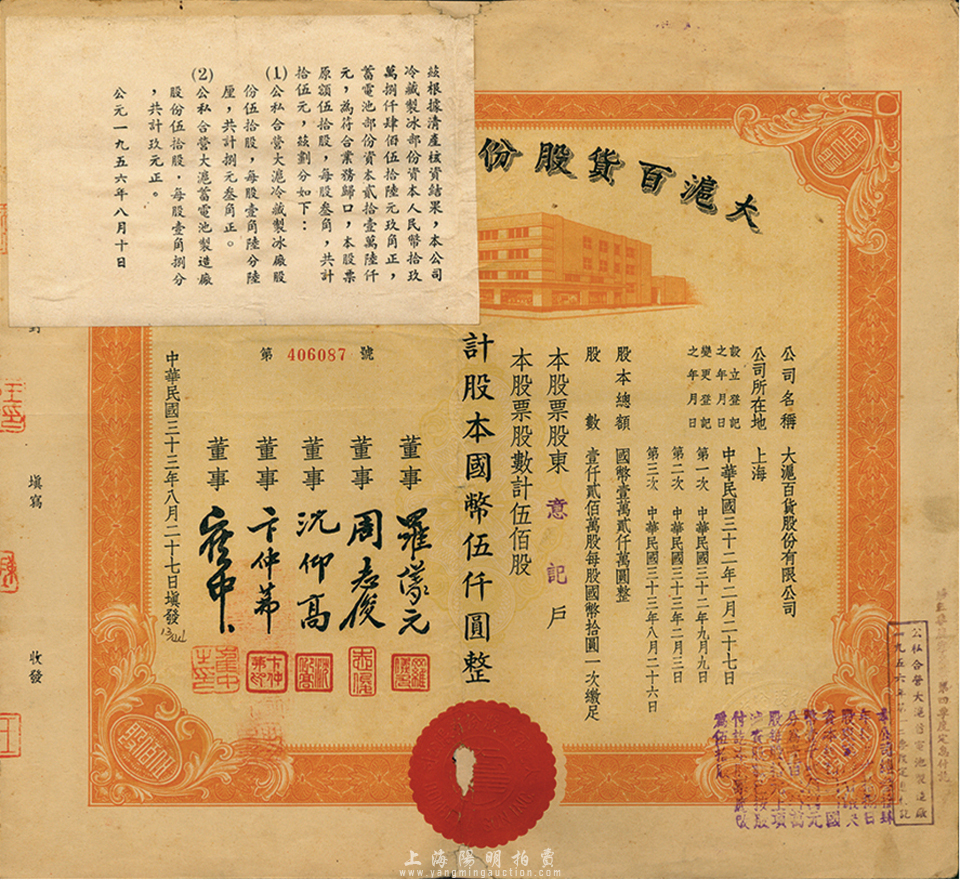 茲根據清產核資結果，本公司
冷藏製冰部份資本人民幣拾玖
萬捌仟肆佰伍拾陸元玖角正，
蓄電池部份資本貳拾壹萬陸仟
元，為符合業務歸口，本股票
原額伍拾股，每股叁角，共計
拾伍元，茲劃分如下：
(1)公私合營大滬冷藏製冰廠股
份伍拾股，每股壹角陸分陸
厘，共計捌元叁角正。
(2)公私合營大滬蓄電池製造廠
股份伍拾股．每股壹角捌分
，共計玖元正。
公元一九五六年八月十日
大滬百貨股份
公司名稱　大滬百貨股份有限公司
公司所在地　上海
設立登記之年月日　中華民國三十二年二月二十七日
變更登記之年月日　第一次　中華民國三十二年九月九日
第二次　中華民國三十三年二月三日
第三次　中華民國三十三年八月二十六日
股本總額　國幣壹萬貳仟萬圓整
股數　壹仟貳佰萬股每股國幣拾圓一次繳足
本股票股東　意記　戶
本股票股數計伍佰股
計股本國幣伍仟圓整
第 406087 號
董事　羅懞元
董事　周志俊
董事　沈仰高
董事　卞仲茀
董事
中華民國三十三年八月二十七日填發
填寫
收發
公私合營大滬蓄電池製造廠
上海陽明拍賣
www.yangmingauction.com